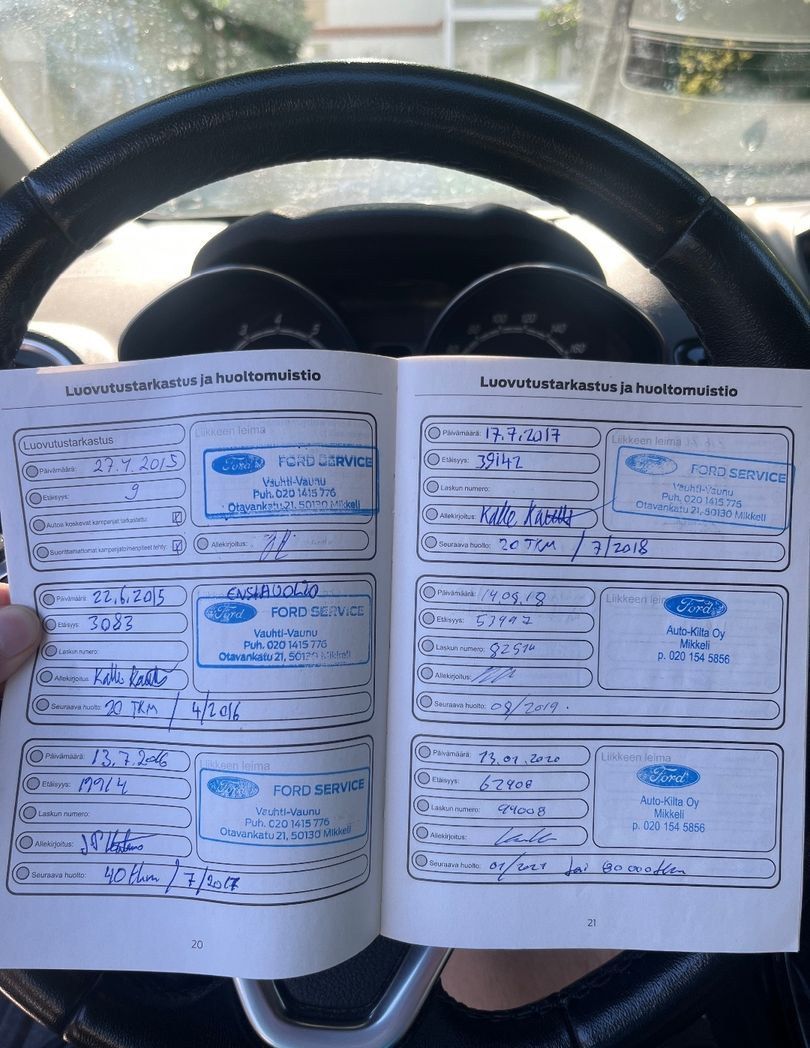 Luovutustarkastus ja huoltomuistio
Luovutustarkastus
Päivämäärä: 27.4.2015
Etäisyys: 9
Autoa koskevat kampanjat tarkastettu:
Suorittamattomat kampanjatoimenpiteet tehty:
Liikkeen leima
Ford FORD SERVICE
Vauhti-Vaunu
Puh. 020 1415 776
Otavankatu 21, 50130 Mikkeli
Allekirjoitus:
Päivämäärä: 22.6.2015
Etäisyys: 3083
Laskun numero:
Allekirjoitus: Kalle
Seuraava huolto: 20 TKM / 4/2016
ENSIHUOLTO
Ford FORD SERVICE
Vauhti-Vaunu
Puh. 020 1415 776
Otavankatu 21, 50130 Mikkeli
Päivämäärä: 13.7.2016
Etäisyys: 19914
Laskun numero:
Allekirjoitus:
Seuraava huolto: 40 tkm / 7/2017
Liikkeen leima
Ford FORD SERVICE
Vauhti-Vaunu
Puh. 020 1415 776
Otavankatu 21, 50130 Mikkeli
20
Luovutustarkastus ja huoltomuistio
Päivämäärä: 17.7.2017
Etäisyys: 39142
Laskun numero:
Allekirjoitus: Kalle
Seuraava huolto: 20 TKM / 7/2018
Liikkeen leima
Ford FORD SERVICE
Vauhti-Vaunu
Puh. 020 1415 776
Otavankatu 21, 50130 Mikkeli
Päivämäärä: 14.08.18
Etäisyys: 53997
Laskun numero: 82514
Allekirjoitus:
Seuraava huolto: 08/2019.
Liikkeen
Ford
Auto-Kilta Oy
Mikkeli
p. 020 154 5856
Päivämäärä: 13.01.2020
Etäisyys: 62408
Laskun numero: 94008
Allekirjoitus:
Seuraava huolto: 01/2021 tai 80000km
Liikkeen leima
Ford
Auto-Kilta Oy
Mikkeli
p. 020 154 5856
21